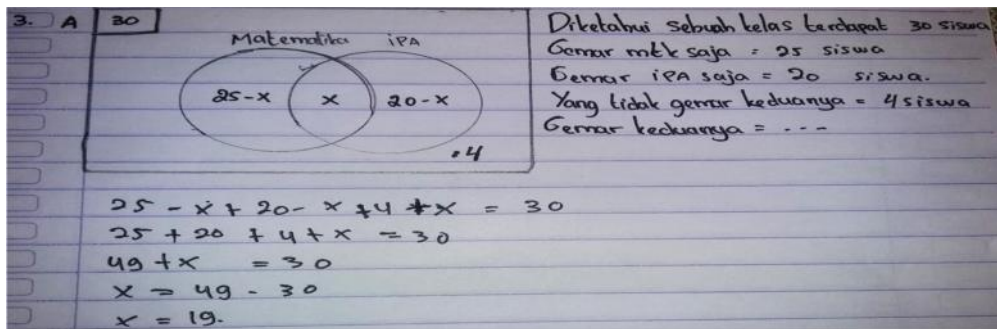 3. A 30
Matematika IPA
25-x x 20-x
.4
Diketahui sebuah kelas terdapat 30 siswa
Gemar mtk saja = 25 siswa
Gemar iPA saja = 20 siswa.
Yang tidak gemar keduanya = 4 siswa
Gemar keduanya = ---
25 - x + 20 - x + 4 + x = 30
25 + 20 + 4 + x = 30
49 + x = 30
x = 49 - 30
x = 19.